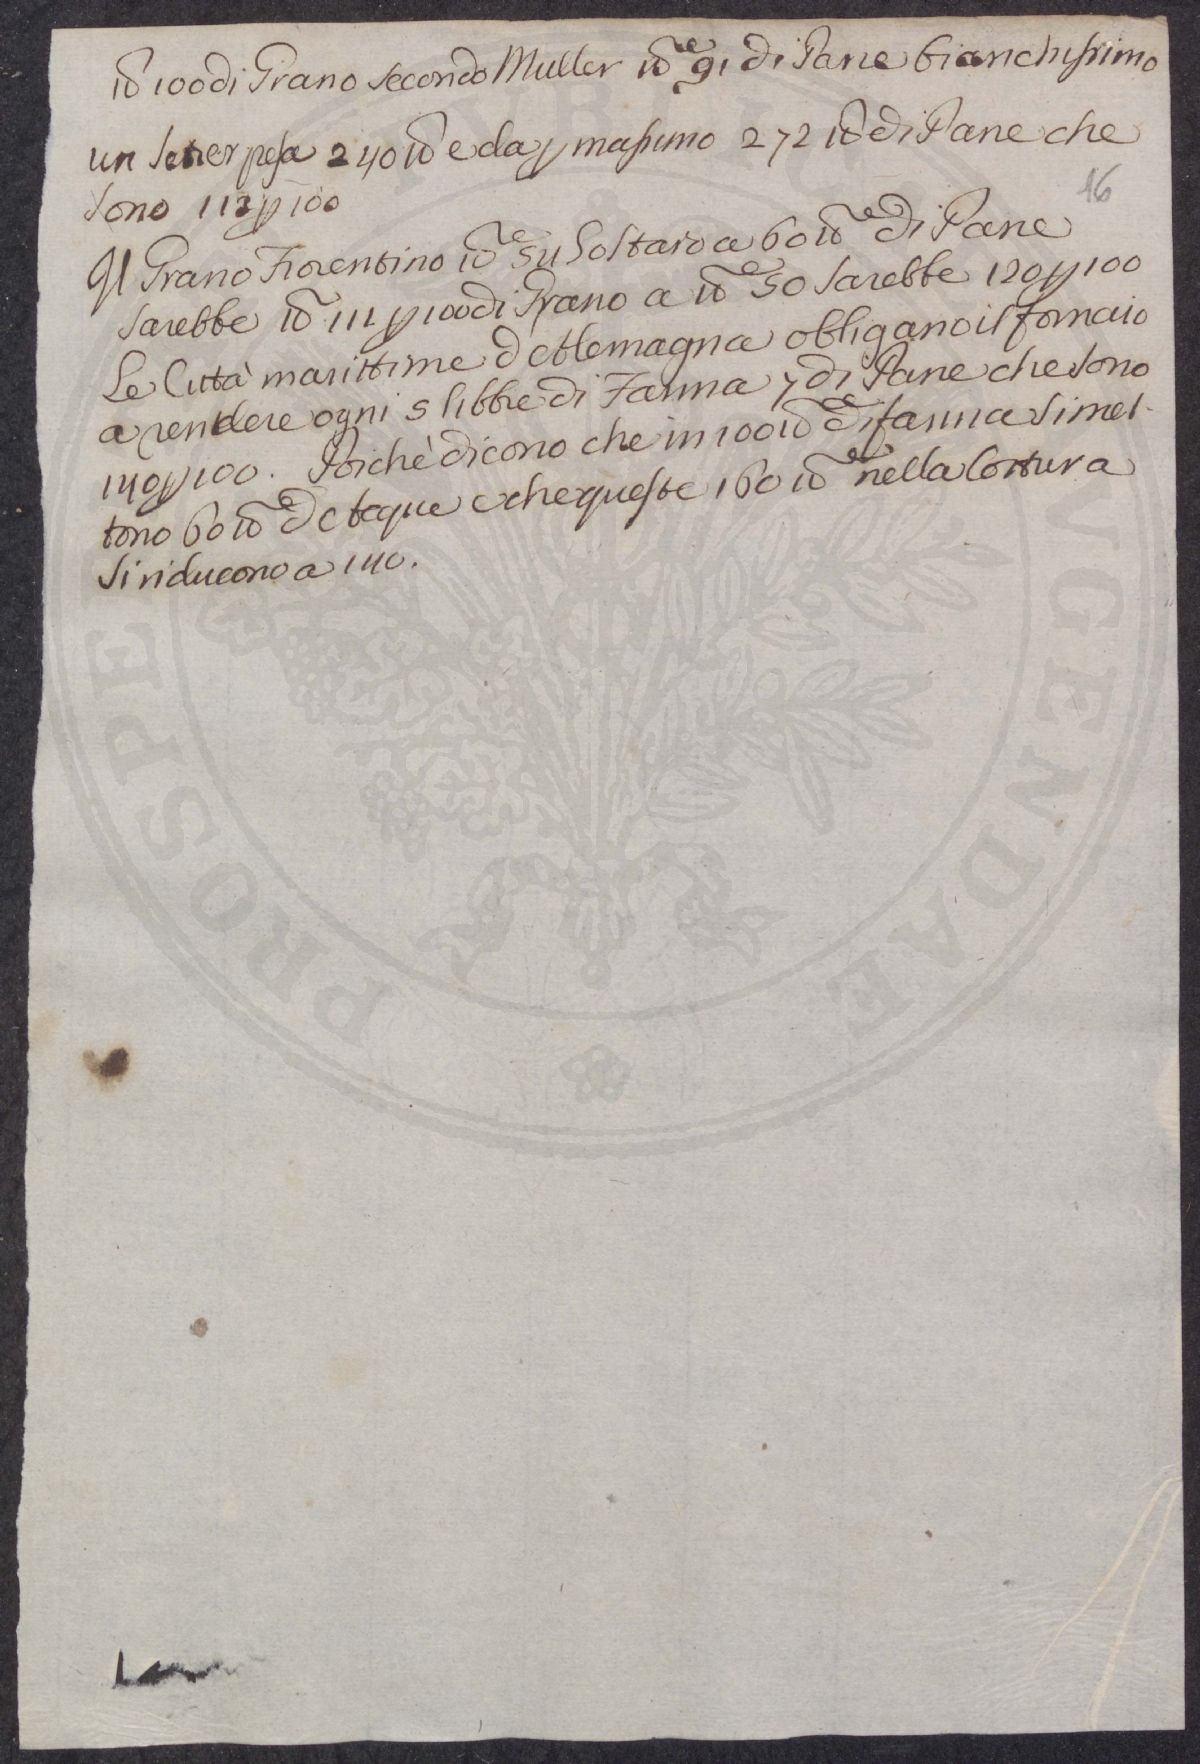 lb 100 di Grano secondo Muller lb.e 91 di Pane bianchissimo
un Setier pesa 240 lb e da p massimo 272 lb di Pane che
sono 113 p 100
16
Il Grano Fiorentino lb.e 54 lo Staio a 60 lb.e di Pane
sarebbe lb 111 p 100 di Grano a lb.e 50 sarebbe 120 p 100
Le Città marittime d'Alemagna obbligano il fornaio
a rendere ogni 5 libbre di Farina 7 di Pane che sono
140 p 100. Poichè dicono che in 100 lb.e di farina si met-
tono 60 lb.e d'Acqua e che queste 160 lb.e nella Cottura
si riducono a 140.
PROSPE
UGENDAE